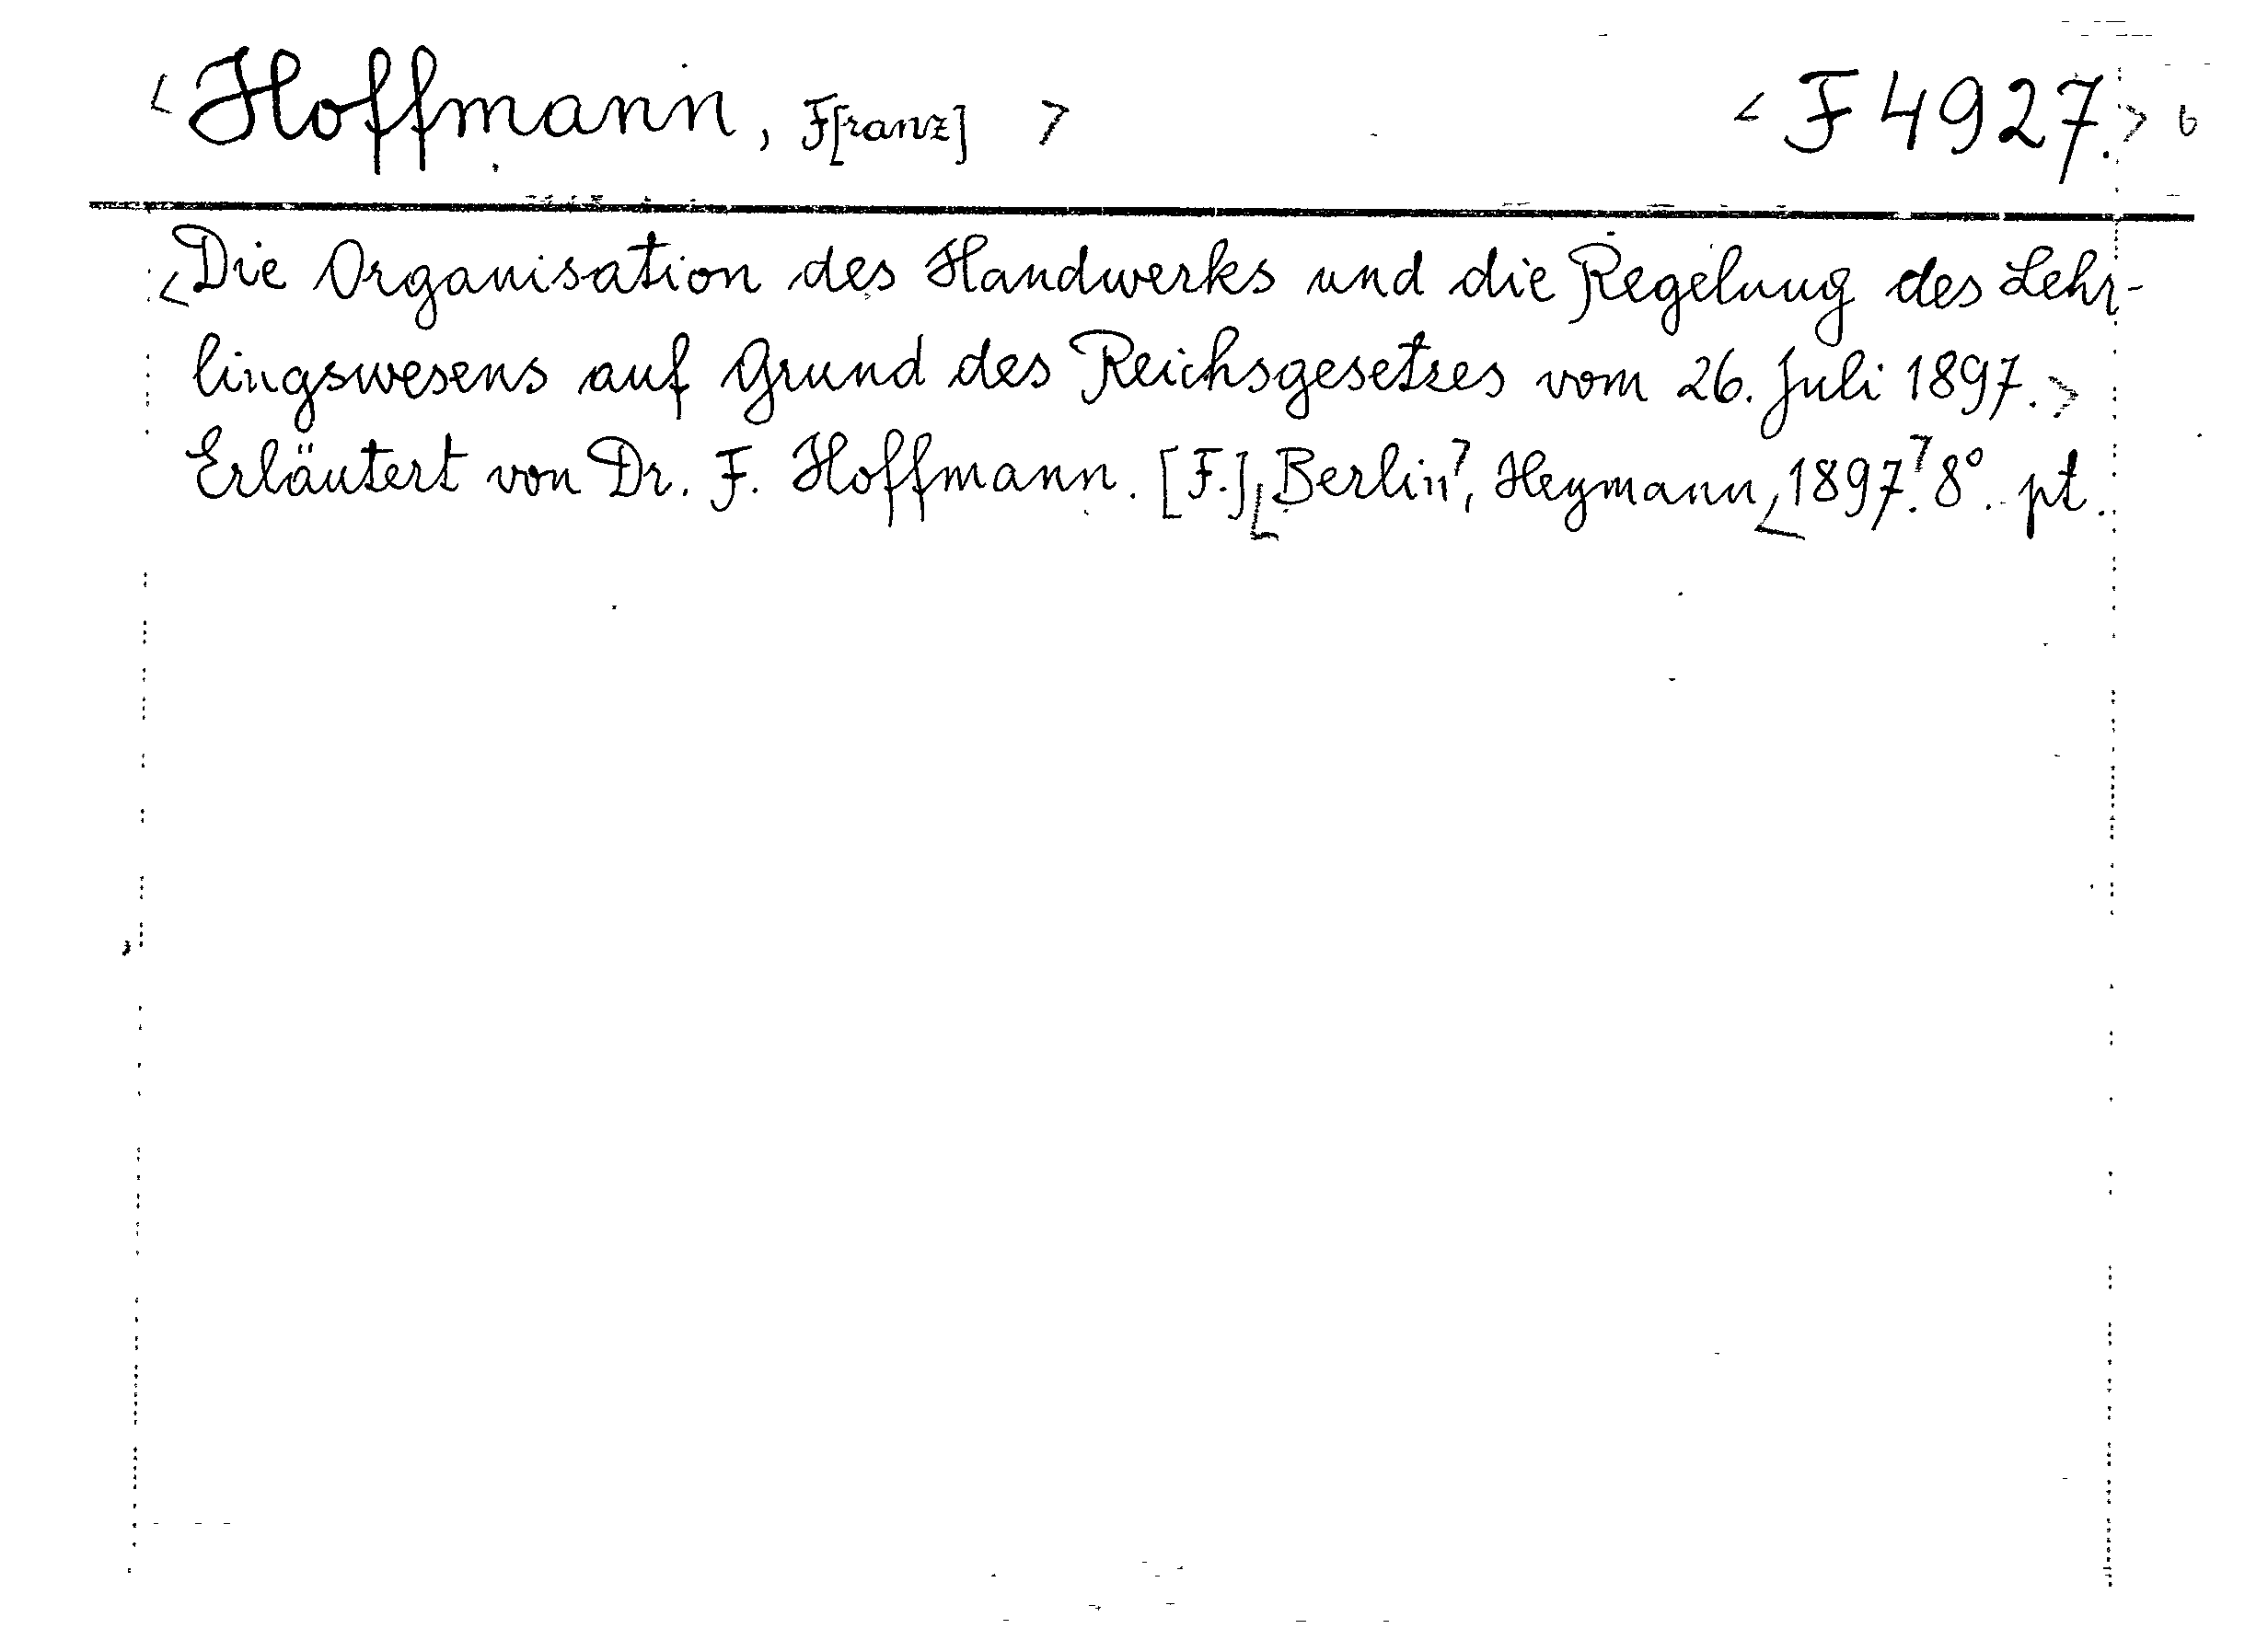 <Hoffmann, F[ranz]> <F 4927.> 6
<Die Organisation des Handwerks und die Regelung des Lehr-
lingswesens auf Grund des Reichsgesetzes vom 26. Juli 1897.>
Erläutert von Dr. F. Hoffmann. [F.] <Berlin>, Heymann, <1897.> 8°. pt.